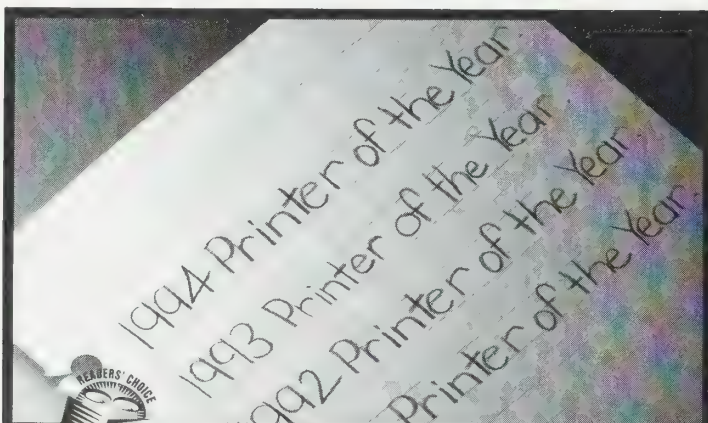 1994 Printer of the Year.
1993 Printer of the Year.
1992 Printer of the Year.
Printer of the Year.
READERS' CHOICE